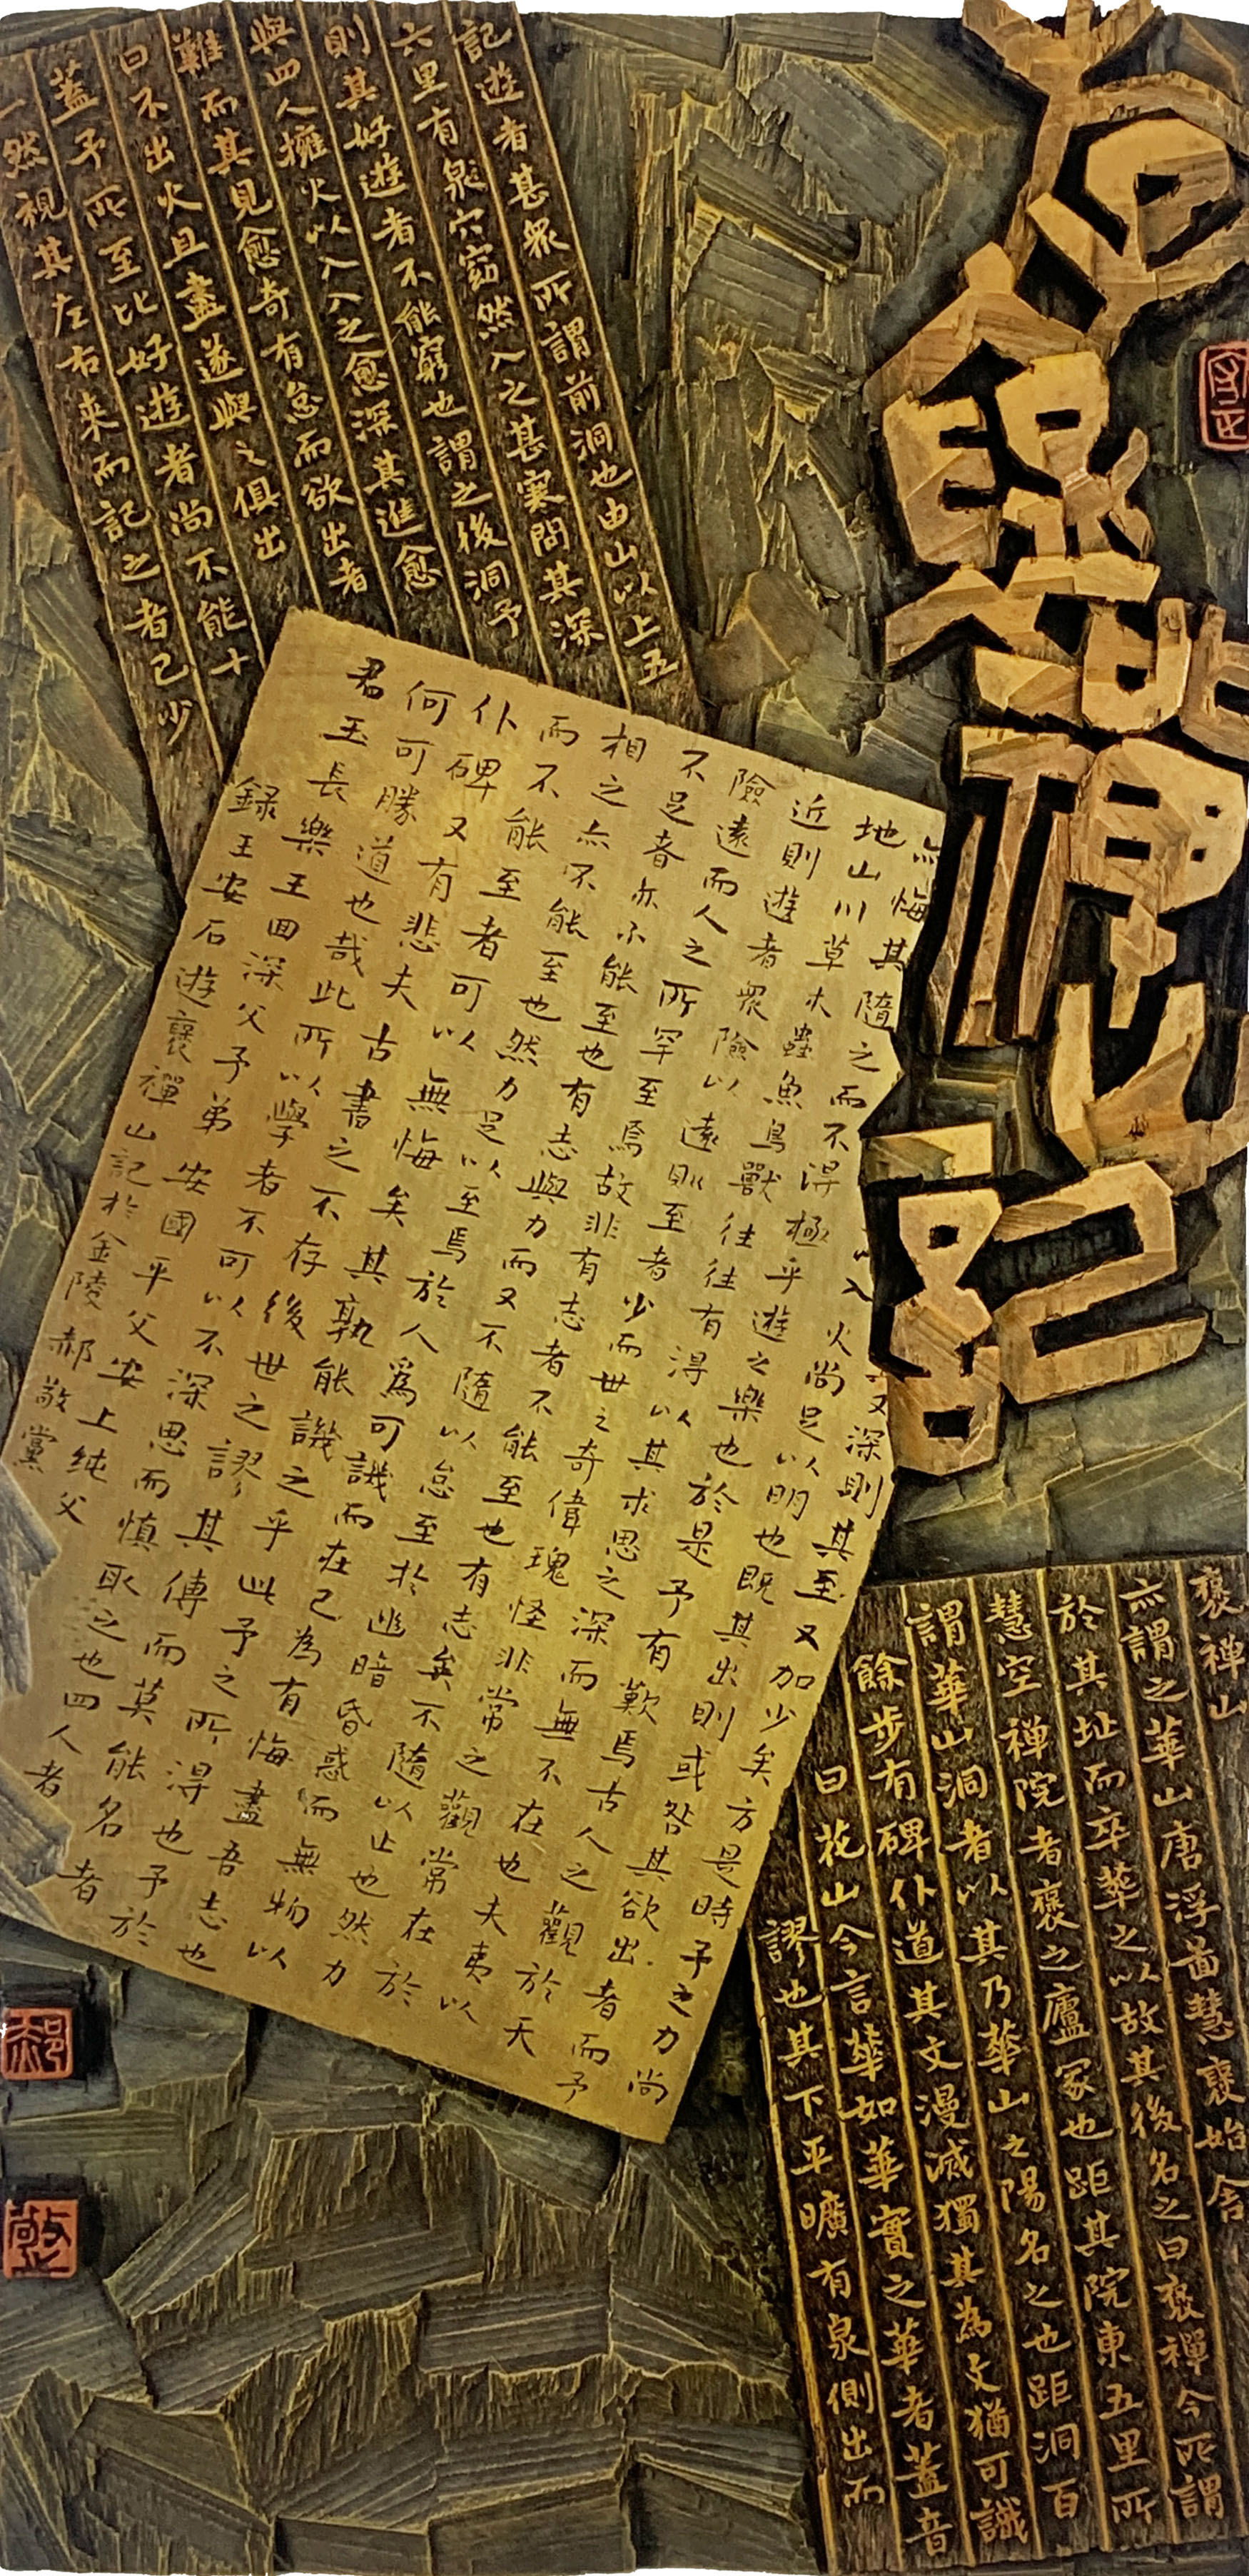 遊褒禪山記
褒禅山
亦謂之華山唐浮啚慧褒始舍
於其址而卒葬之以故其後名之曰褒禪今所謂
慧空禅院者褒之廬冢也距其院東五里所
謂華山洞者以其乃華山之陽名之也距洞百
餘步有碑仆道其文漫滅獨其為文猶可識
曰花山今言華如華實之華者蓋音
謬也其下平曠有泉側出而
記遊者甚衆所謂前洞也由山以上五
六里有泉穴窈然入之甚寒問其深
則其好遊者不能窮也謂之後洞予
與四人擁火以入入之愈深其進愈
難而其見愈奇有怠而欲出者
曰不出火且盡遂與之俱出
蓋予所至比好遊者尚不能十
一然視其左右來而記之者已少
又深則其至又加少矣方是時予之力尚
入火尚足以明也既其出則或咎其欲出者而予
亦悔其隨之而不得極乎遊之樂也於是予有歎焉古人之觀於天
地山川草木蟲魚鳥獸往往有得以其求思之深而無不在也夫夷以
近則遊者衆險以遠則至者少而世之奇偉瑰怪非常之觀常在於
險遠而人之所罕至焉故非有志者不能至也有志矣不隨以止也然力
不足者亦不能至也有志與力而又不隨以怠至於幽暗昏惑而無物以
相之亦不能至也然力足以至焉於人為可譏而在己為有悔盡吾志也
而不能至者可以無悔矣其孰能譏之乎此予之所得也予於
仆碑又有悲夫古書之不存後世之謬其傳而莫能名者
何可勝道也哉此所以學者不可以不深思而慎取之也四人者
君玉長樂王回深父予弟安國平父安上纯父
録王安石遊褒禪山記於金陵郝敬黨
郝
敬